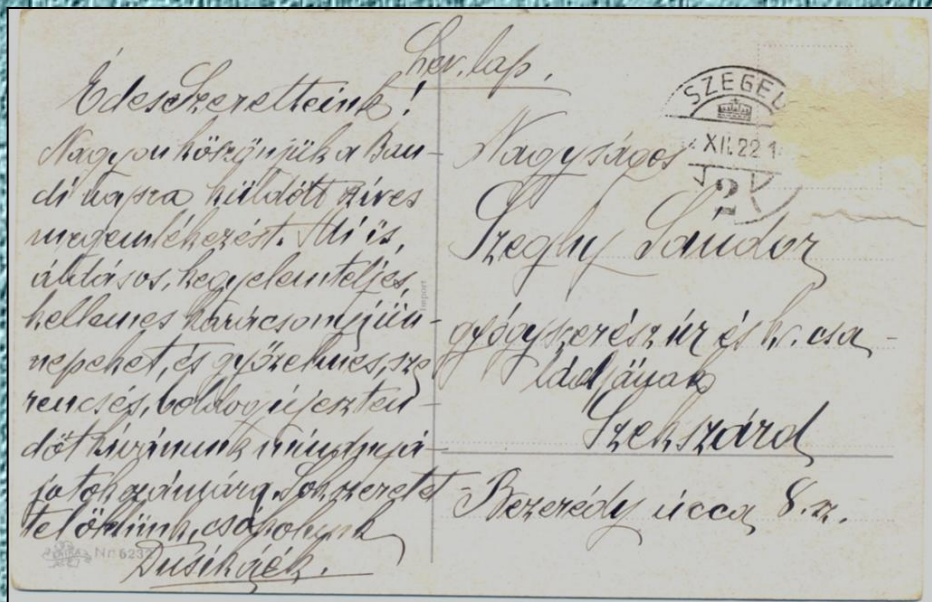 Lev. lap.
Édes Szeretteink!
Nagyon köszönjük a Ban-
di napra küldött szíves
megemlékezést. Mi is,
áldásos, kegyelemteljes,
kellemes karácsonyi ün-
nepeket, és győzelmes, sze-
rencsés, boldog újeszten-
dőt kívánunk mindnyá-
jatok számára. Sok szeretet-
tel ölelünk, csókolunk
Dusikáék.
Nr. 623
SZEGED
XII. 22 1
2
Nagyságos
Szeghy Sándor
gyógyszerész úr és k. csa-
ládjának
Szekszárd
Bezerédy úcca 8. sz.
import